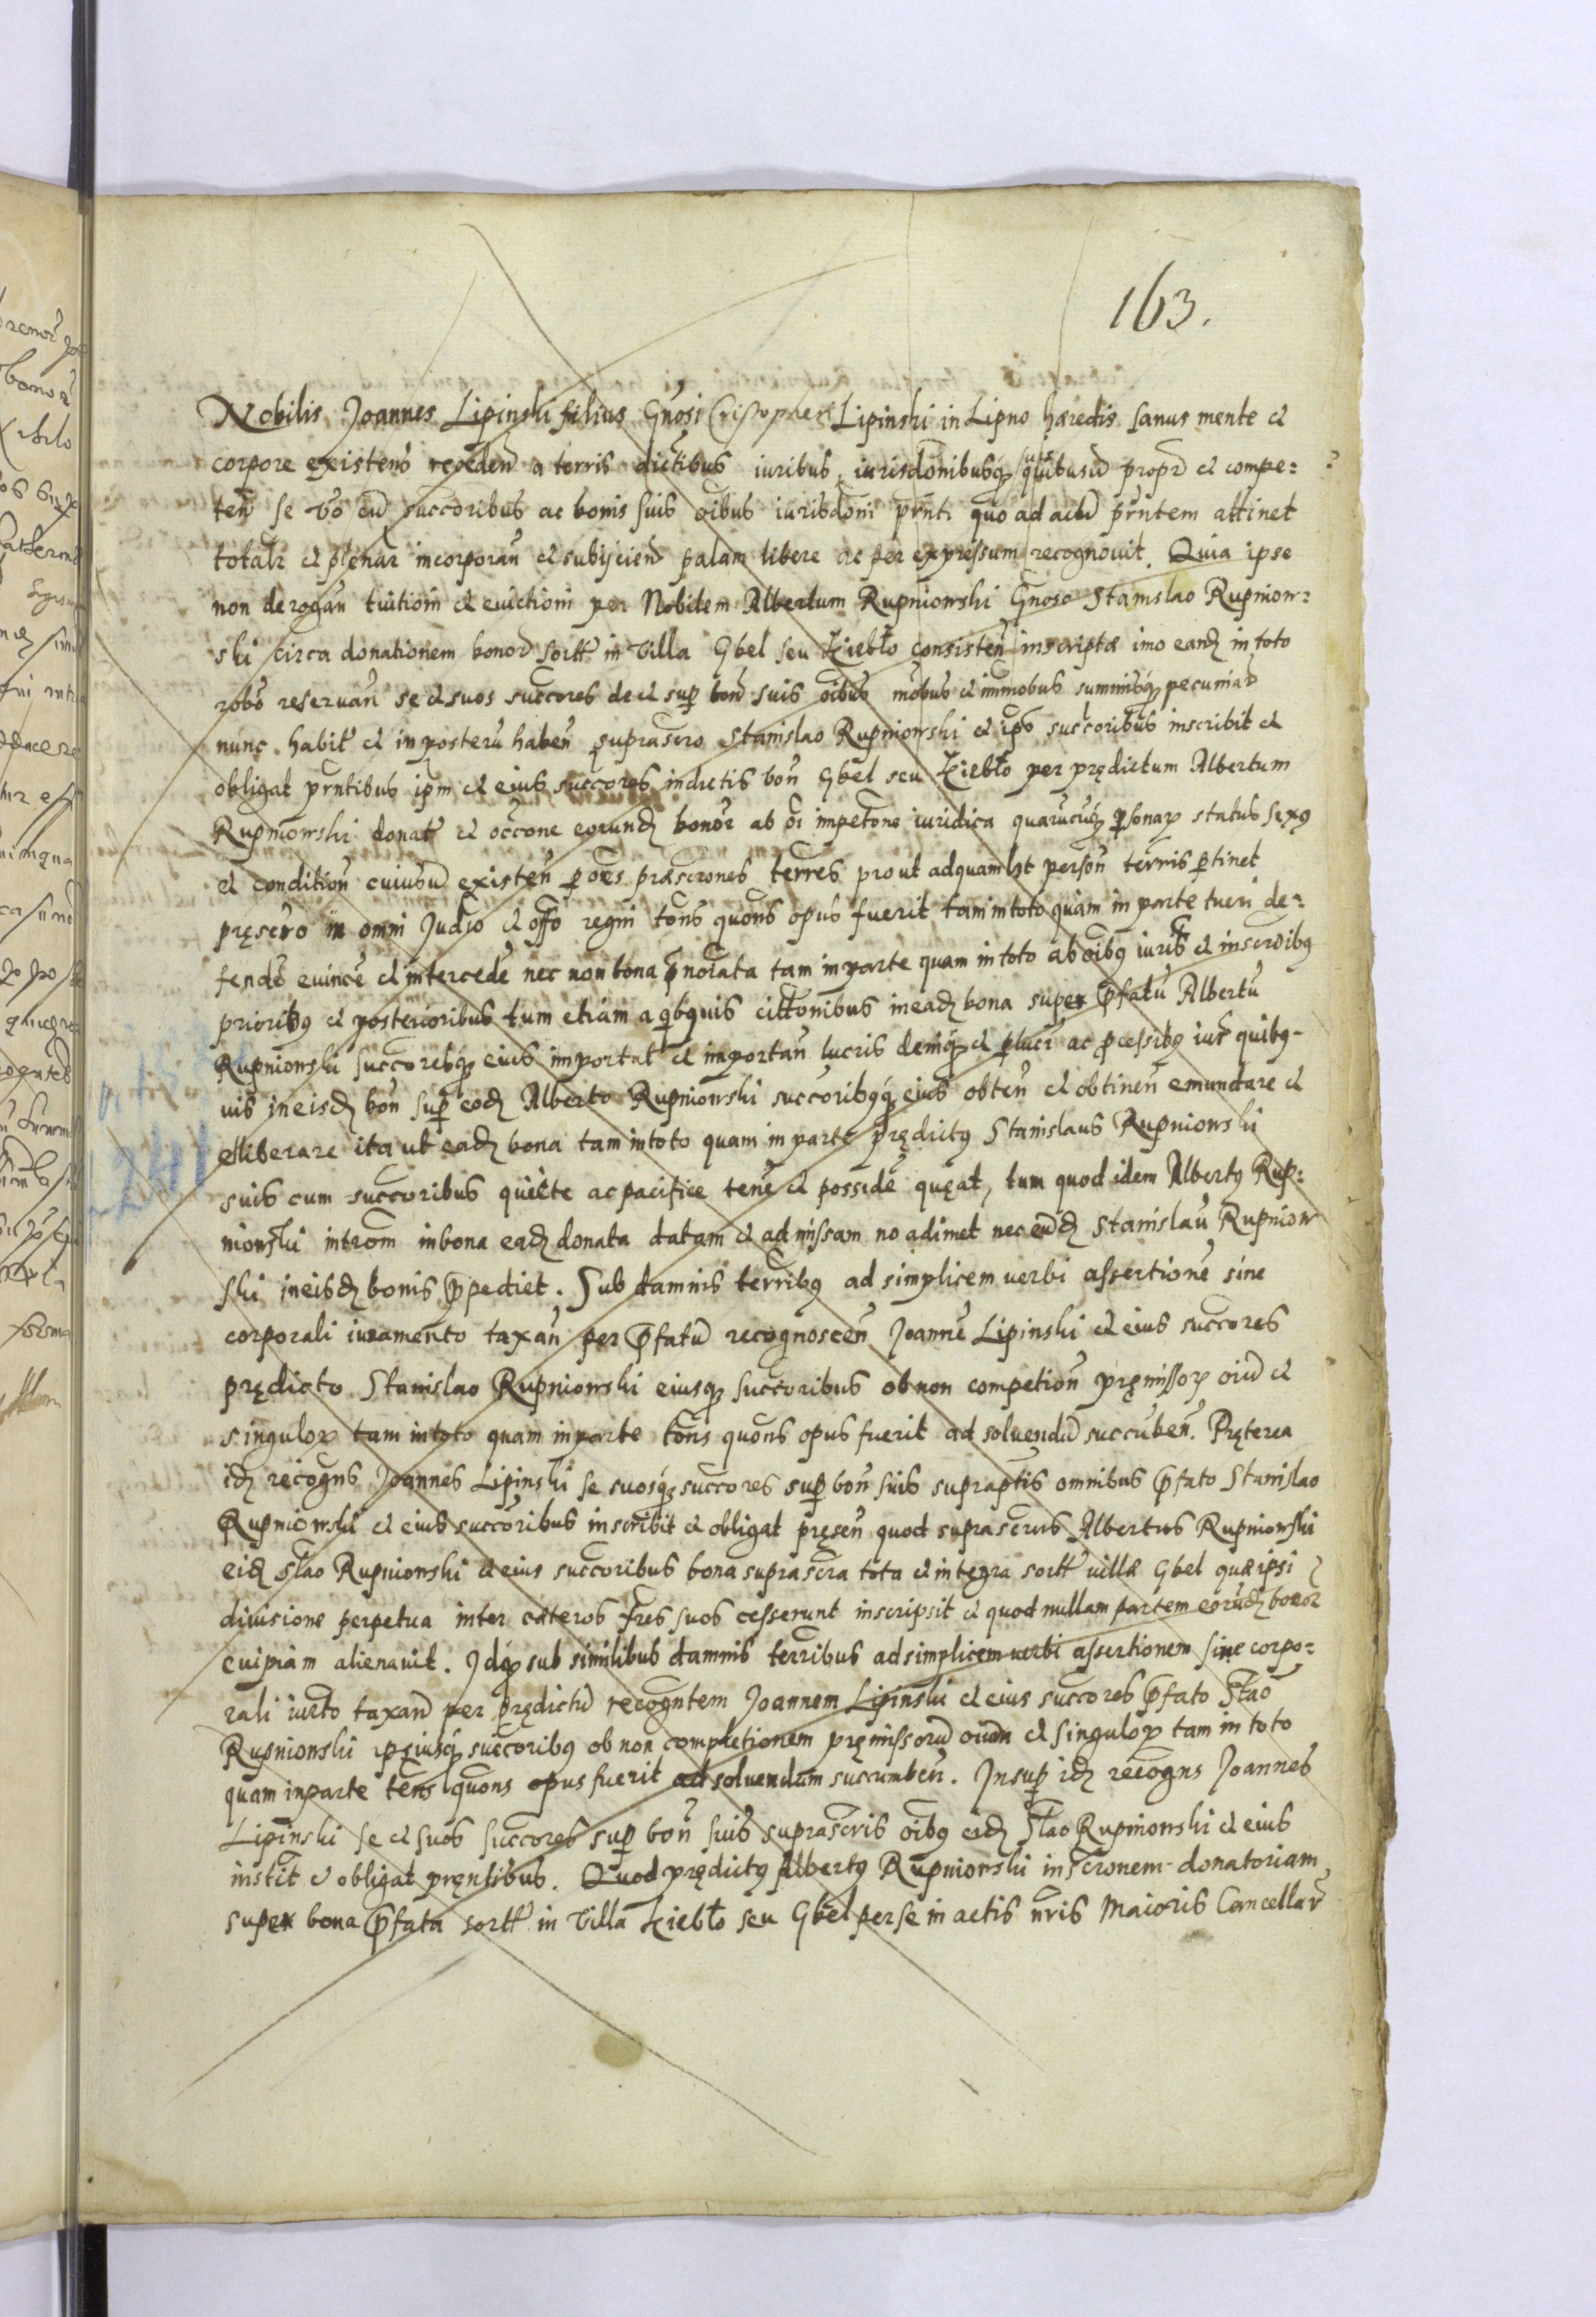 163.
Nobilis Joannes Lipinski filius Gnosi Cristopheri Lipinski in Lipno hæredis sanus mente et
corpore existens receden a terris dictibus iuribus iurisdonibusq suis quibusvis propr et compe:
ten se vo cu succoribus ac bonis suis oibus iurisdoni prnti quo ad actu prntem attinet
totalr et plenar incorporan et subijcien palam libere ac per expressum recognouit. Quia ipse
non derogan tuitioni et euictioni per Nobilem Albertum Rupniowski Gnoso Stanislao Rupniow:
ski circa donationem bonor sortt in Villa Gbel seu Kiebło consisten inscriptæ imo eandz in toto
robo reseruan se et suos succores de et sup bon suis oibus mobus et immobus summisq pecuniar
nunc habit et in posteru haben suprascro Stanislao Rupniowski et ips succoribus inscribit et
obligat prntibus ipm et eius succores in dictis bon Gbel seu Kiebło per prędictum Albertum
Rupniowski donat et occone eorundz bonor ab oi impetone iuridica quarucuq psonar status sexus
et condition cuiusuis existen p oes præscrones terres prout ad quamlt person terris ptinet
pręscro in omni Judio et offo regni tons quons opus fuerit tam in toto quam in parte tueri de:
fende euince et intercede nec non bona pnorata tam in parte quam in toto ab oibus iuribs et inscroibus
prioribus et posterioribus tum etiam a qibusuis cittonibus in eadz bona super pfatu Albertu
Rupniowski succoresq eius importat et importan lucris deniq et pluci ac pcessibus iur quibus-
uis in eisdz bon sup eodz Alberto Rupniowski succoribusq eius obten et obtinen emundare et
eliberare ita ut eadz bona tam in toto quam in parte prędictus Stanislaus Rupniowski
suis cum succoribus quiete ac pacifice tene et posside quęat, tum quod idem Albertus Rup:
niowski introm in bona eadz donata datam et admissam no adimet nec eudz Stanislau Rupniow
ski in eisdz bonis ppediet. Sub damnis terribus ad simplicem uerbi assertione sine
corporali iuramento taxan per pfatu recognoscen Joanne Lipinski et eius succores
prędicto Stanislao Rupniowski eiusq succoribus ob non competion pręmissor oiu et
singulor tam in toto quam in parte tons quons opus fuerit ad soluendu succuben. Pręterea
idz recogns Joannes Lipinski se suosq succores sup bon suis supraptis omnibus pfato Stanislao
Rupniowski et eius succoribus inscribit et obligat pręsen quod suprascrus Albertus Rupniowski
eidz Stao Rupniowski et eius succoribus bona suprascra tota et integra sortt uillæ Gbel quæ ipsi
diuisione perpetua inter cæteros fres suos cesserunt inscripsit et quod nullam partem eorudz bonor
cuipiam alienauit. Idq sub similibus damnis terribus ad simplicem uerbi assertionem sine corpo:
rali iurto taxan per prędictu recogntem Joannem Lipinski et eius succores pfato Stao
Rupniowski ipsiusq succoribus ob non completionem pręmissoru oium et singulor tam in toto
quam in parte tens quons opus fuerit ad soluendum succumben. Insup idz recogns Joannes
Lipinski se et suos succores sup bon suis suprascris oibus eidz Stao Rupniowski et eius
instit et obligat pręntibus. Quod prędictus Albertus Rupniowski inscronem donatoriam
super bona pfata sortt in Villa Kiebło seu Gbel per se in actis nris Maioris Cancellar